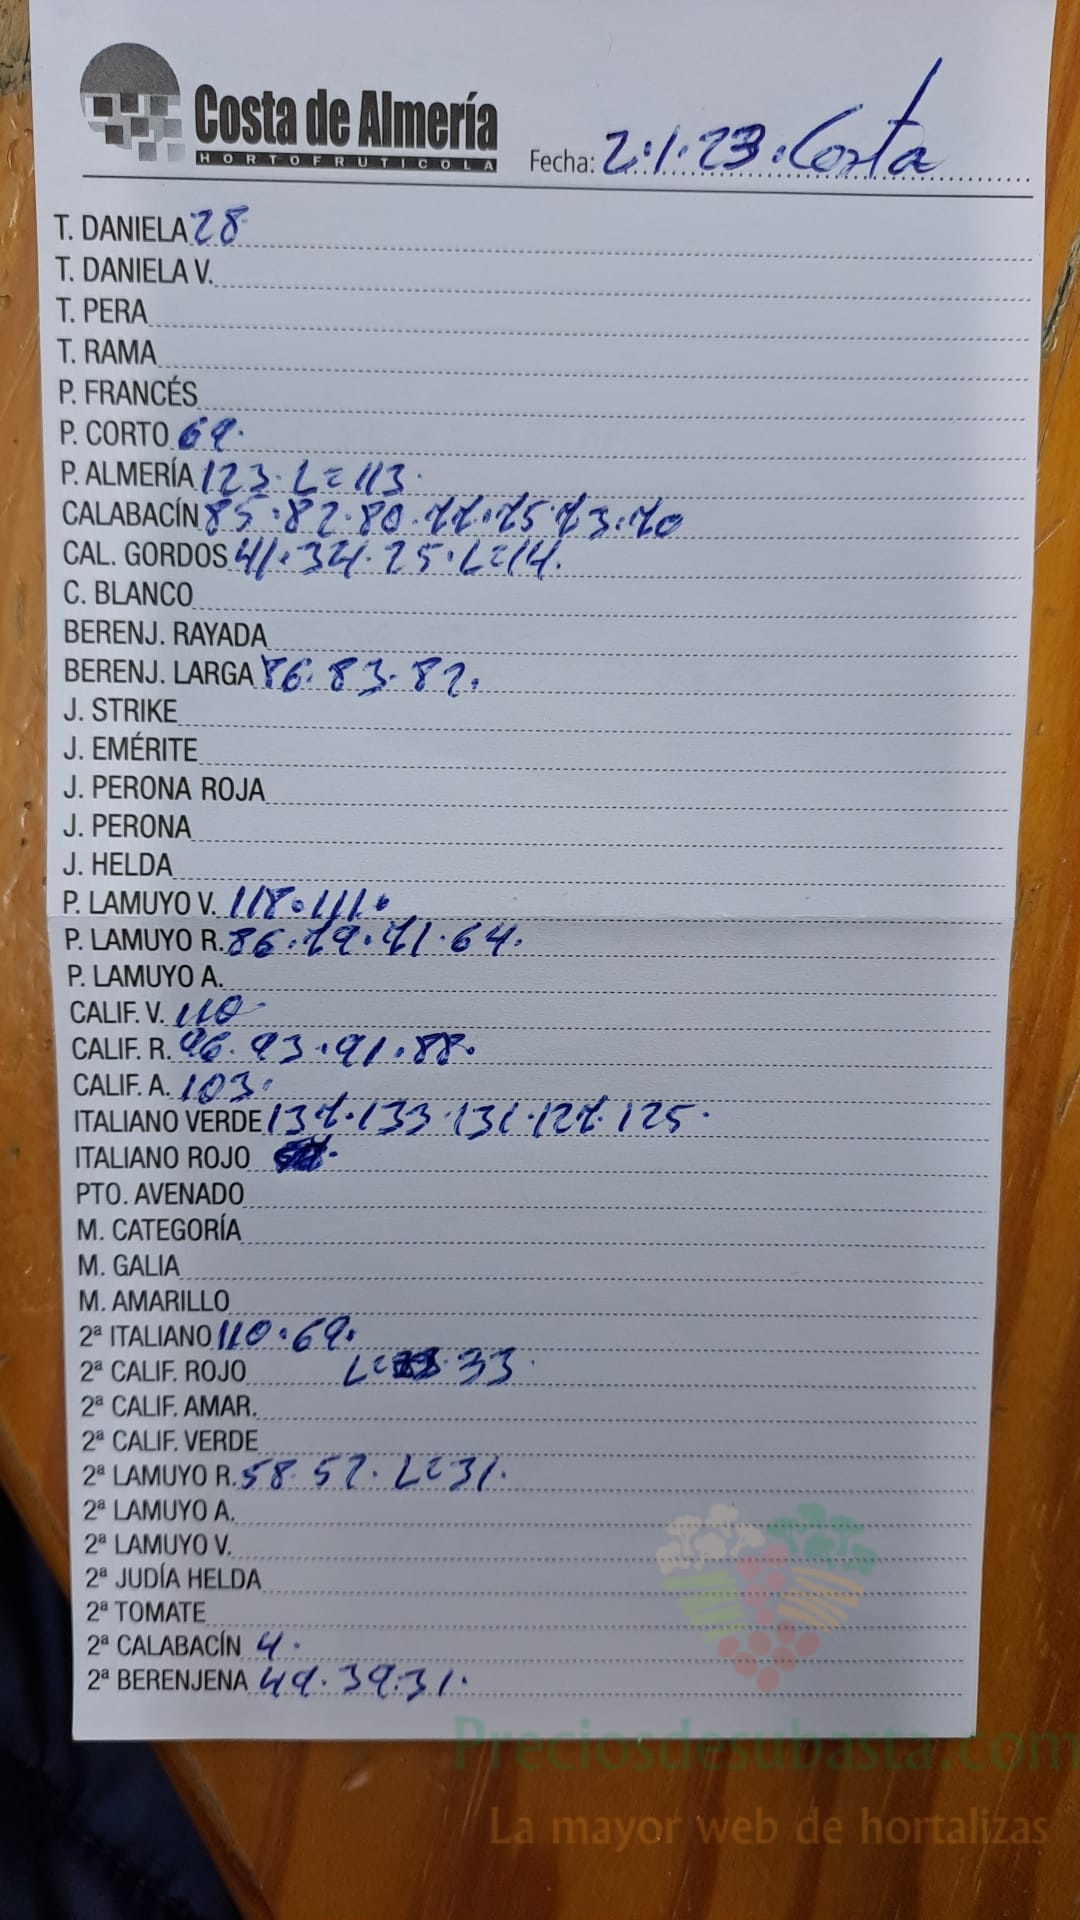 Costa de Almería
HORTOFRUTICOLA
Fecha: 2.1.23. Costa
T. DANIELA 28
T. DANIELA V.
T. PERA
T. RAMA
P. FRANCÉS
P. CORTO 69.
P. ALMERÍA 123. L=113.
CALABACÍN 85.82.80.77.75.73.70
CAL. GORDOS 41.34.25.L=14.
C. BLANCO
BERENJ. RAYADA
BERENJ. LARGA 86.83.82.
J. STRIKE
J. EMÉRITE
J. PERONA ROJA
J. PERONA
J. HELDA
P. LAMUYO V. 118.111.
P. LAMUYO R. 86.79.71.64.
P. LAMUYO A.
CALIF. V. 110
CALIF. R. 96.93.91.88.
CALIF. A. 103.
ITALIANO VERDE 137.133.131.127.125.
ITALIANO ROJO
PTO. AVENADO
M. CATEGORÍA
M. GALIA
M. AMARILLO
2ª ITALIANO 110.69.
2ª CALIF. ROJO L= 33.
2ª CALIF. AMAR.
2ª CALIF. VERDE
2ª LAMUYO R. 58.52. L=31.
2ª LAMUYO A.
2ª LAMUYO V.
2ª JUDÍA HELDA
2ª TOMATE
2ª CALABACÍN 4.
2ª BERENJENA 49.39.31.
Preciosdesubasta.com
La mayor web de hortalizas